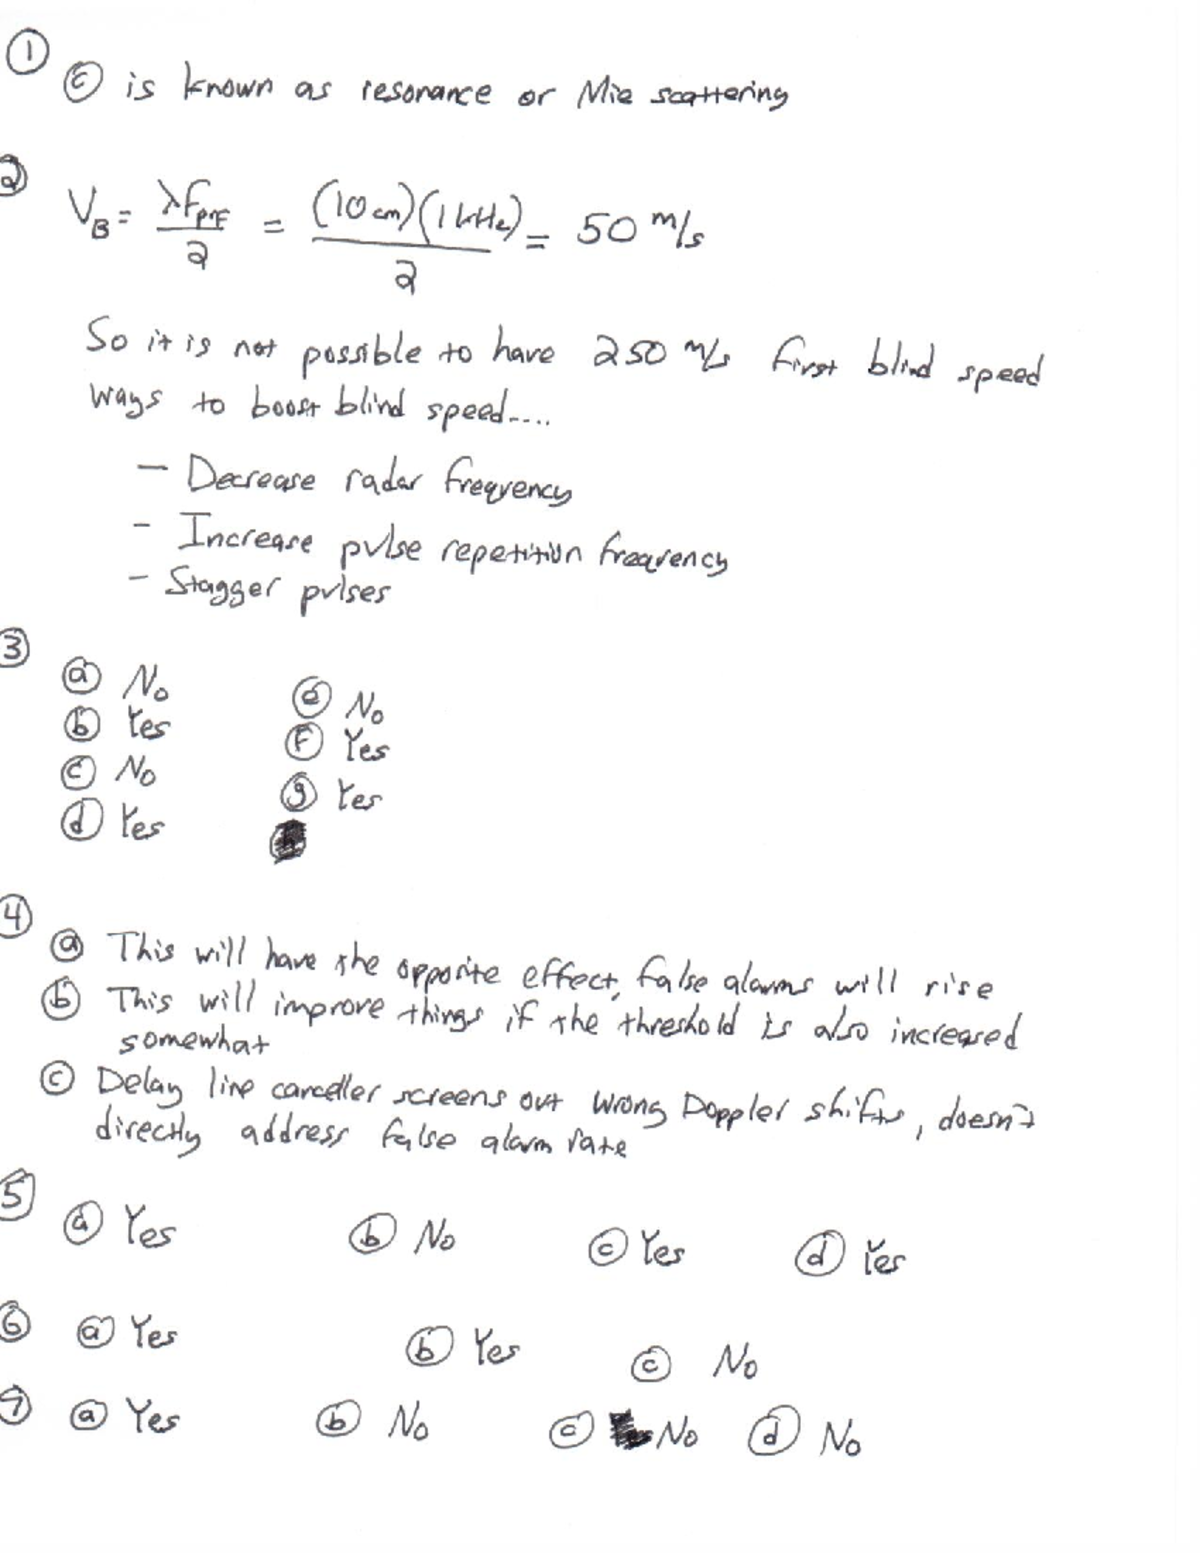 ① ⓒ is known as resonance or Mie scattering
② V_B = λf_PRF / 2 = (10 cm)(1 kHz) / 2 = 50 m/s
So it is not possible to have 250 m/s first blind speed
ways to boost blind speed....
– Decrease radar frequency
- Increase pulse repetition frequency
- Stagger pulses
③
ⓐ No
ⓑ Yes
ⓒ No
ⓓ Yes
ⓔ No
ⓕ Yes
ⓖ Yes
④
ⓐ This will have the opposite effect, false alarms will rise
ⓑ This will improve things if the threshold is also increased
somewhat
ⓒ Delay line canceller screens out wrong Doppler shifts, doesn't
directly address false alarm rate
⑤ ⓐ Yes ⓑ No ⓒ Yes ⓓ Yes
⑥ ⓐ Yes ⓑ Yes ⓒ No
⑦ ⓐ Yes ⓑ No ⓒ No ⓓ No